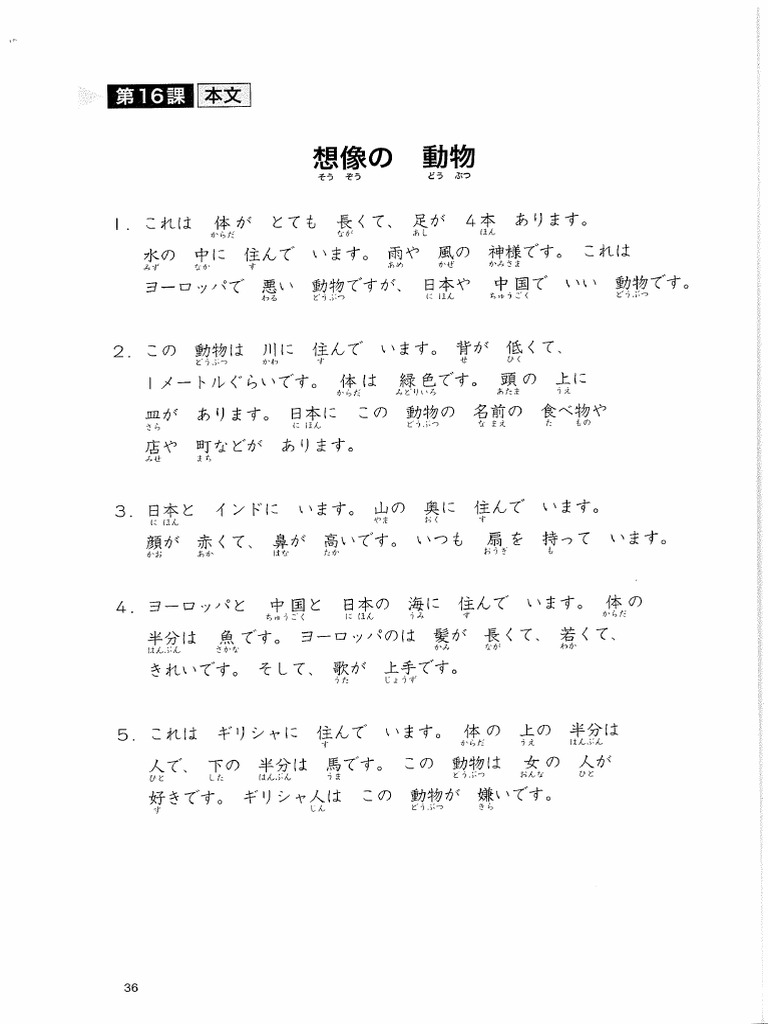 第16課 本文
想像の 動物
そう ぞう どう ぶつ
1. これは 体が とても 長くて、 足が 4本 あります。
からだ なが あし ほん
水の 中に 住んで います。 雨や 風の 神様です。 これは
みず なか す あめ かぜ かみさま
ヨーロッパで 悪い 動物ですが、 日本や 中国で いい 動物です。
わる どうぶつ に ほん ちゅうごく どうぶつ
2. この 動物は 川に 住んで います。 背が 低くて、
どうぶつ かわ す せ ひく
1メートルぐらいです。 体は 緑色です。 頭の 上に
からだ みどりいろ あたま うえ
皿が あります。 日本に この 動物の 名前の 食べ物や
さら に ほん どうぶつ な まえ た もの
店や 町などが あります。
みせ まち
3. 日本と インドに います。 山の 奥に 住んで います。
に ほん やま おく す
顔が 赤くて、 鼻が 高いです。 いつも 扇を 持って います。
かお あか はな たか おうぎ も
4. ヨーロッパと 中国と 日本の 海に 住んで います。 体の
ちゅうごく に ほん うみ す からだ
半分は 魚です。 ヨーロッパのは 髪が 長くて、 若くて、
はんぶん さかな かみ なが わか
きれいです。 そして、 歌が 上手です。
うた じょうず
5. これは ギリシャに 住んで います。 体の 上の 半分は
す からだ うえ はんぶん
人で、 下の 半分は 馬です。 この 動物は 女の 人が
ひと した はんぶん うま どうぶつ おんな ひと
好きです。 ギリシャ人は この 動物が 嫌いです。
す じん どうぶつ きら
36